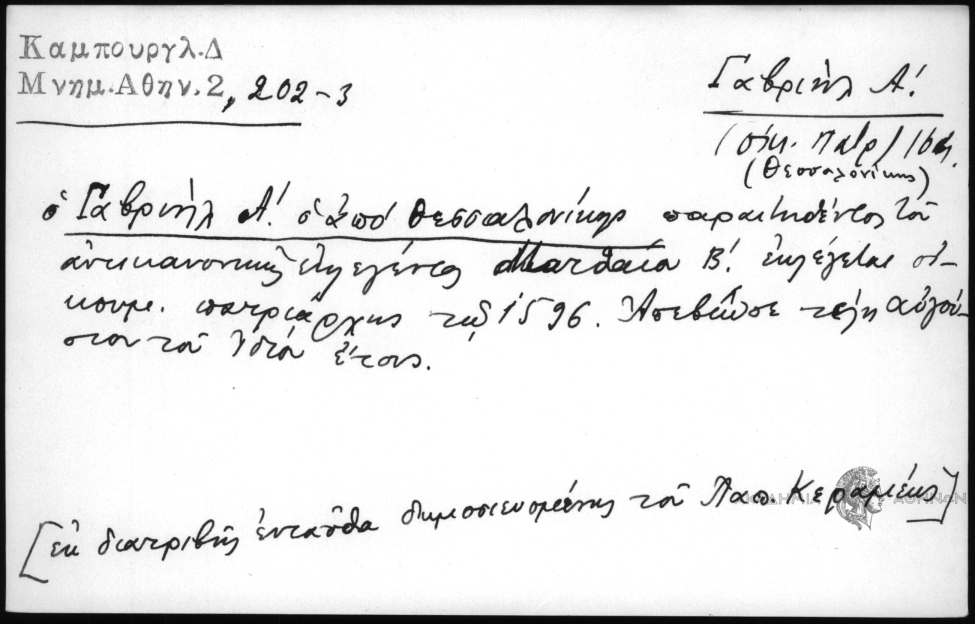 Καμπουργλ.Δ
Μνημ.Αθην.2, 202-3
Γαβριὴλ Α!
(οἰκ. Πατρ) 16 αἰ.
(Θεσσαλονίκης)
ὁ Γαβριὴλ Α! ὁ ἀπὸ Θεσσαλονίκης παραιτηθέντος τοῦ
ἀντικανονικῶς ἐκλεγέντος Ματθαίου Β! ἐκλέγεται οἰ-
κουμ. πατριάρχης τῷ 1596. Ἀπεβίωσε τέλη αὐγού-
στου τοῦ ἰδίου ἔτους.
[ἐκ διατριβῆς ἐνταῦθα δημοσιευομένης τοῦ Παπ. Κεραμέως]
ΑΚΑΔΗΜΙΑ ΑΘΗΝΩΝ